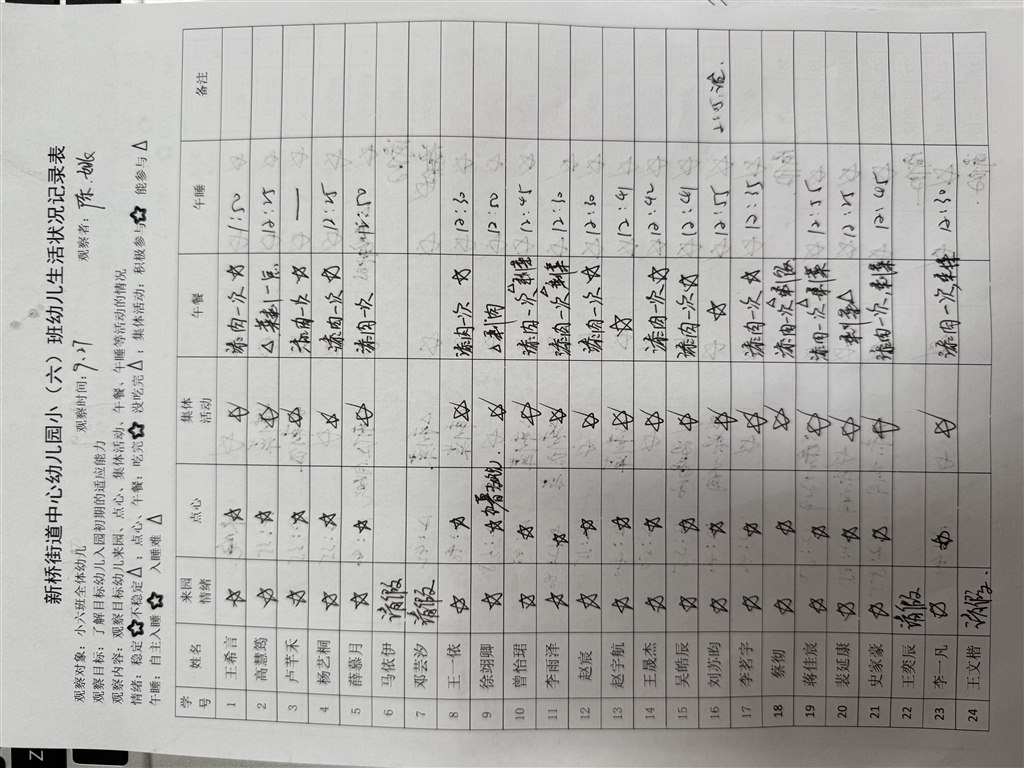 新桥街道中心幼儿园小（六）班幼儿生活状况记录表
观察对象：小六班全体幼儿 观察时间：9.17 观察者：陈
观察目标：了解目标幼儿入园初期的适应能力
观察内容：观察目标幼儿来园、点心、集体活动、午餐、午睡等活动的情况
情绪：稳定☆不稳定△；点心、午餐：吃完☆ 没吃完△；集体活动：积极参与☆ 能参与△
午睡：自主入睡☆ 入睡难 △
学号 姓名 来园情绪 点心 集体活动 午餐 午睡 备注
1 王希言 ☆ ☆ ☆ 添肉一次☆ 1:50
2 高慧筠 ☆ ☆ ☆ △菜剩一点 12:45
3 卢芊禾 ☆ ☆ ☆ 添肉一次☆ —
4 杨艺桐 ☆ ☆ ☆ 添肉一次☆ 12:45
5 薛慕月 ☆ ☆ ☆ 添肉一次 12:50
6 马依伊 请假
7 邓芸汐 请假
8 王一依 ☆ ☆ ☆ 添肉一次☆ 12:30
9 徐翊卿 ☆ ☆ ☆ △剩肉 12:50
10 曾怡君 ☆ ☆ ☆ 添肉一次△剩菜 12:45
11 李雨泽 ☆ ☆ ☆ 添肉一次△剩菜 12:30
12 赵宸 ☆ ☆ ☆ 添肉一次☆ 12:30
13 赵宇航 ☆ ☆ ☆ ☆ 12:41
14 王晟杰 ☆ ☆ ☆ 添肉一次☆ 12:42
15 吴皓辰 ☆ ☆ ☆ 添肉一次☆ 12:41
16 刘苏昀 ☆ ☆ ☆ ☆ 12:55
17 李茗宇 ☆ ☆ ☆ 添肉一次☆ 12:35
18 蔡彻 ☆ ☆ ☆ 添肉一次△剩饭
19 蒋佳宸 ☆ ☆ ☆ 添肉一次△剩菜 12:55
20 裴延康 ☆ ☆ ☆ 剩菜△ 12:45
21 史家豪 ☆ ☆ ☆ 添肉一次△剩菜 12:45
22 王奕辰 请假
23 李一凡 ☆ ☆ ☆ 添肉一次△剩菜 12:30
24 王文楷 请假.